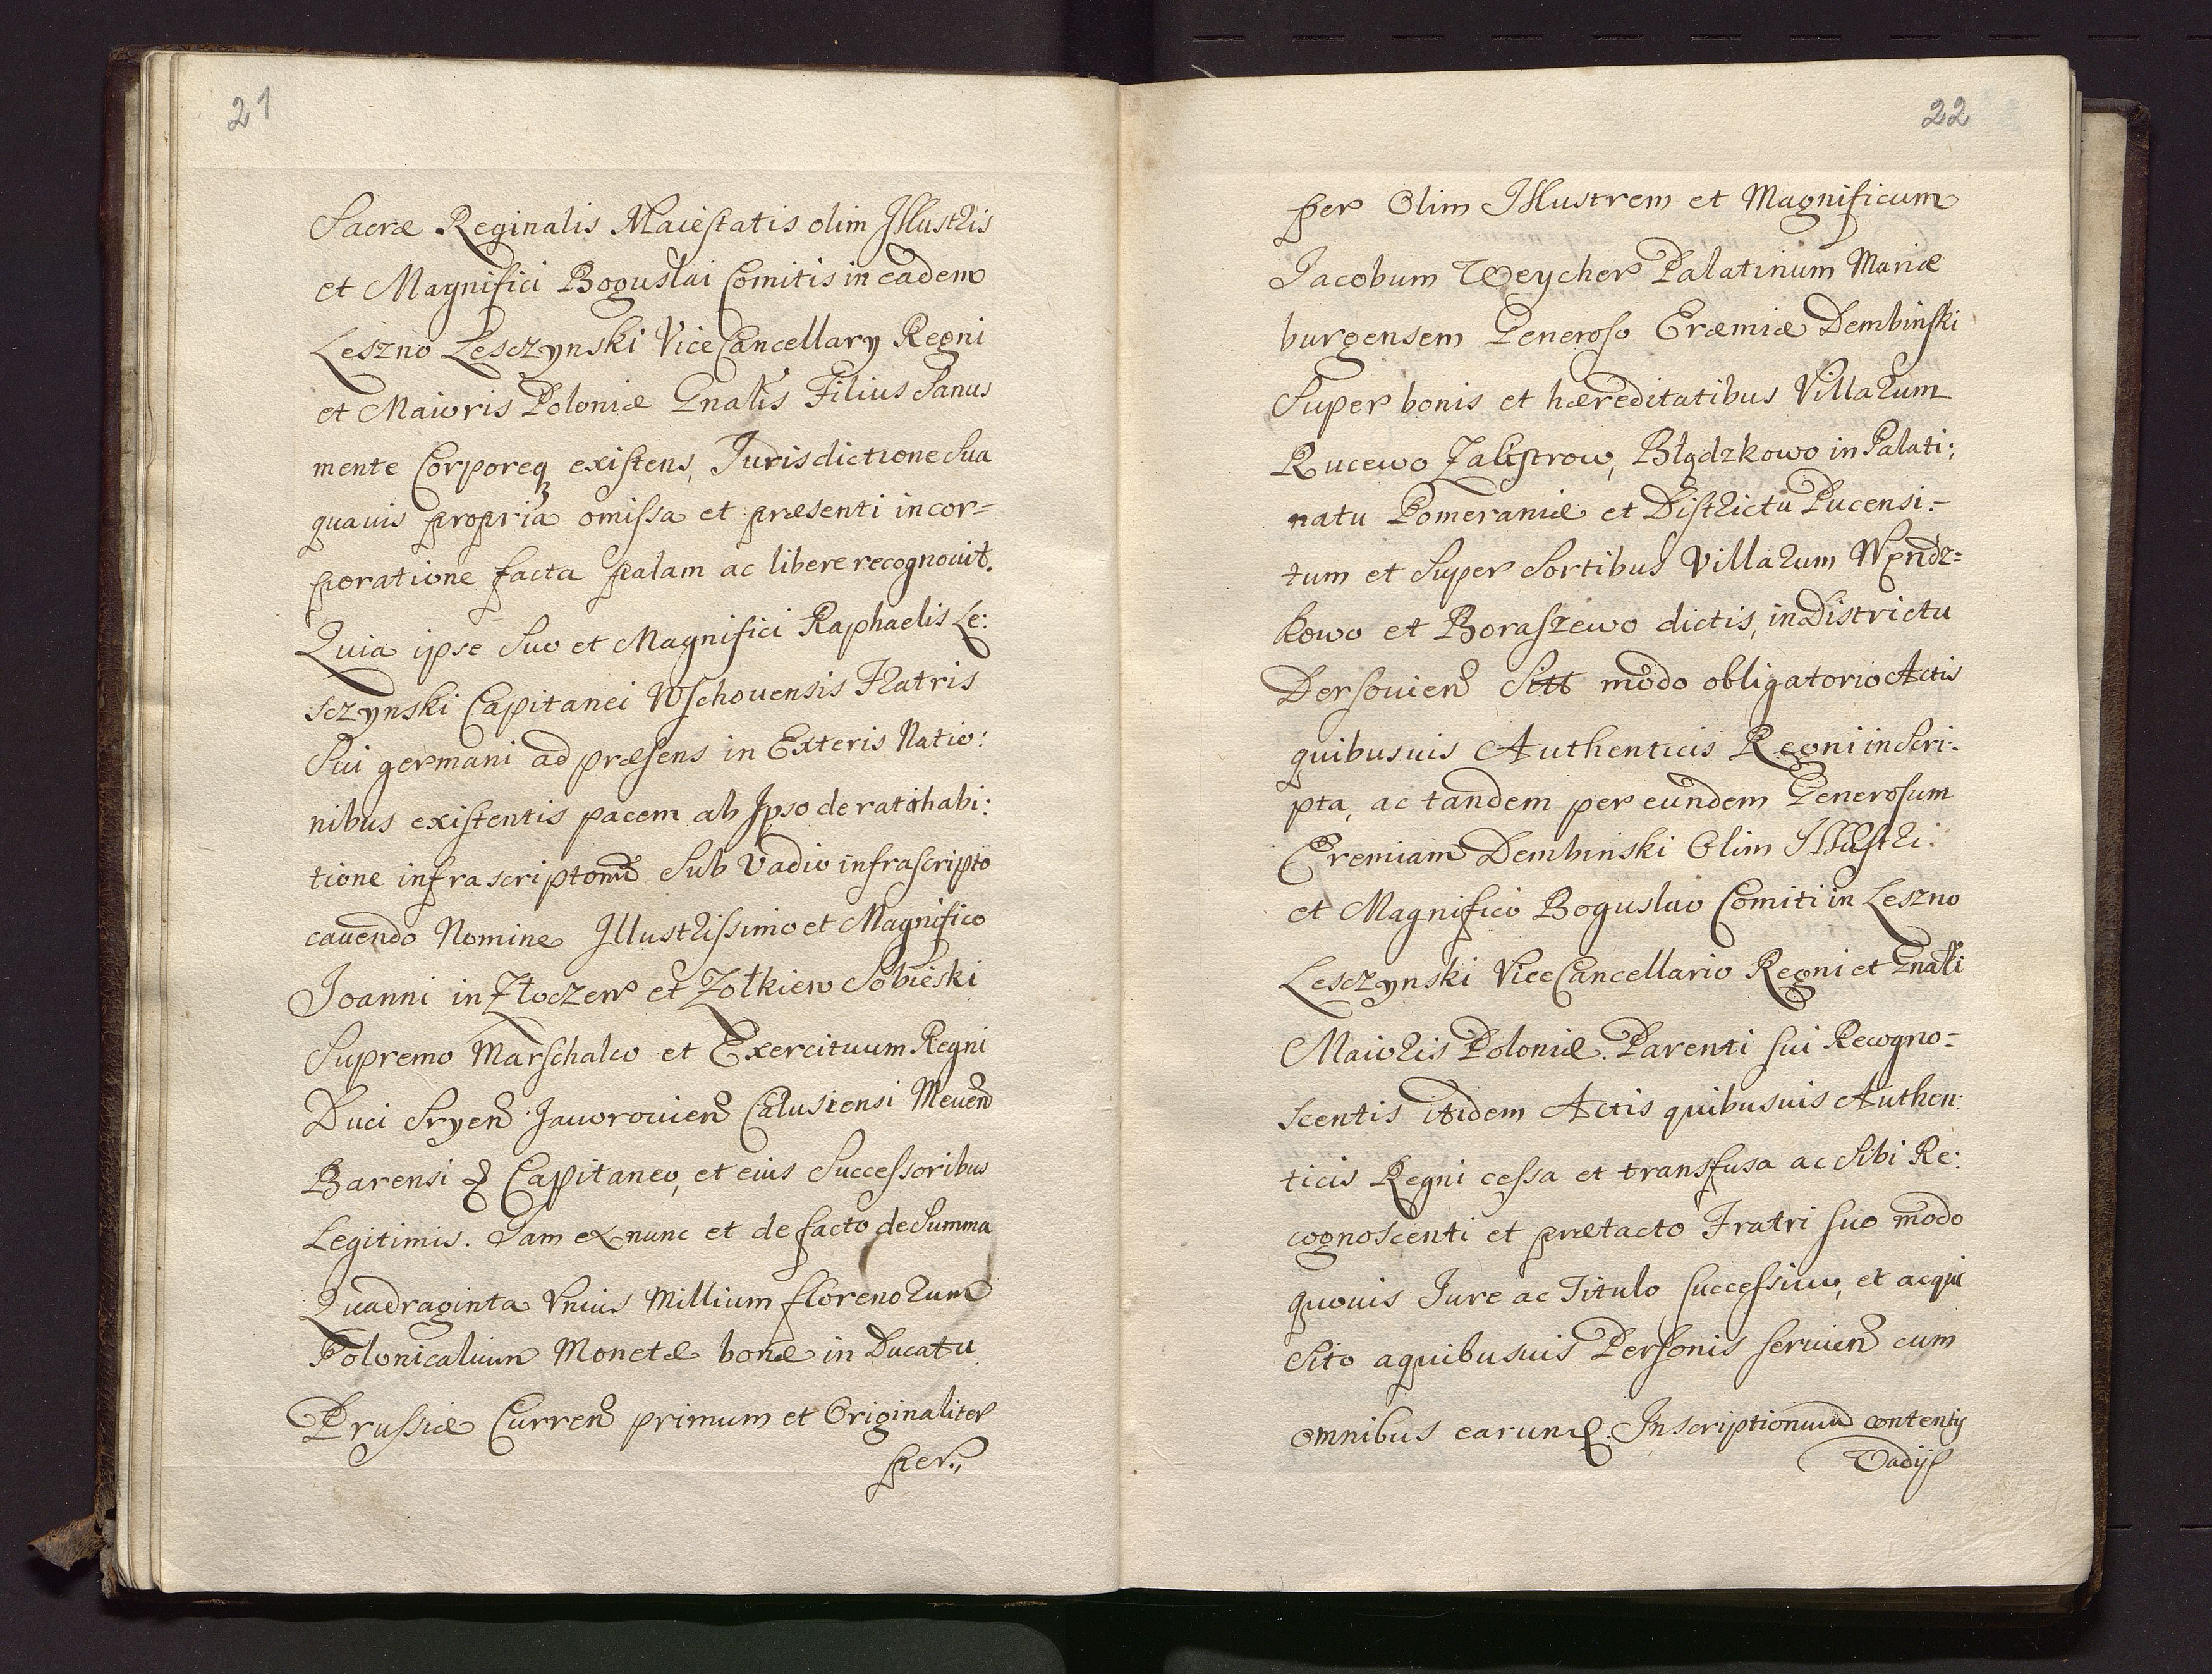 21
Sacræ Reginalis Maiestatis olim Illustris
et Magnifici Boguslai Comitis in eadem
Leszno Lesczynski ViceCancellary Regni
et Maioris Poloniæ Gnalis Filius Sanus
mente Corporeq existens, Jurisdictione Sua
quauis propria omissa et præsenti incor-
poratione facta palam ac libere recognouit.
Quia ipse Suo et Magnifici Raphaelis Le:
sczynski Capitanei Wschouensis Fratris
Sui germani ad præsens in Exteris Natio:
nibus existentis pacem ab Ipso de ratihabi:
tione infrascriptorũ Sub Vadio infrascripto
cauendo Nomine Illustrissimo et Magnifico
Joanni in Złoczew et Zołkiew Sobieski
Supremo Marschalco et Exercituum Regni
Duci Sryen Jaworouien Calusiensi Meuen
Barensi & Capitaneo, et eius Successoribus
Legitimis. Jam ex nunc et de facto de Summa
Quadraginta Vnius Millium florenorum
Polonicalium Monetæ bonæ in Ducatu
Prussiæ Curren primum et Originaliter
per.,
22
per Olim Illustrem et Magnificum
Jacobum Weycher Palatinum Mariæ
burgensem Generoso Eræmiæ Dembinski
Super bonis et hæreditatibus Villarum
Rucewo Zalistrow, Błądzkowo in Palati:
natu Pomeraniæ et Districtu Pucensi-
tum et Super Sortibus Villarum Wendz=
kowo et Boraszewo dictis, in Districtu
Dersouien Sitt modo obligatorio Actis
quibusuis Authenticis Regni inScri-
pta, ac tandem per eundem Generosum
Eremiam Dembinski Olim Illustri:
et Magnifico Boguslao Comiti in Leszno
Lesczynski ViceCancellario Regni et Gnali
Maioris Poloniæ. Parenti sui Recogno-
scentis itidem Actis quibusuis Authen:
ticis Regni cessa et transfusa ac Sibi Re:
cognoscenti et prætacto Fratri suo modo
quouis Jure ac Titulo successiuo, et acqui
Sito a quibusuis Personis seruien cum
omnibus earund. Inscriptionum contentis
Vadijs